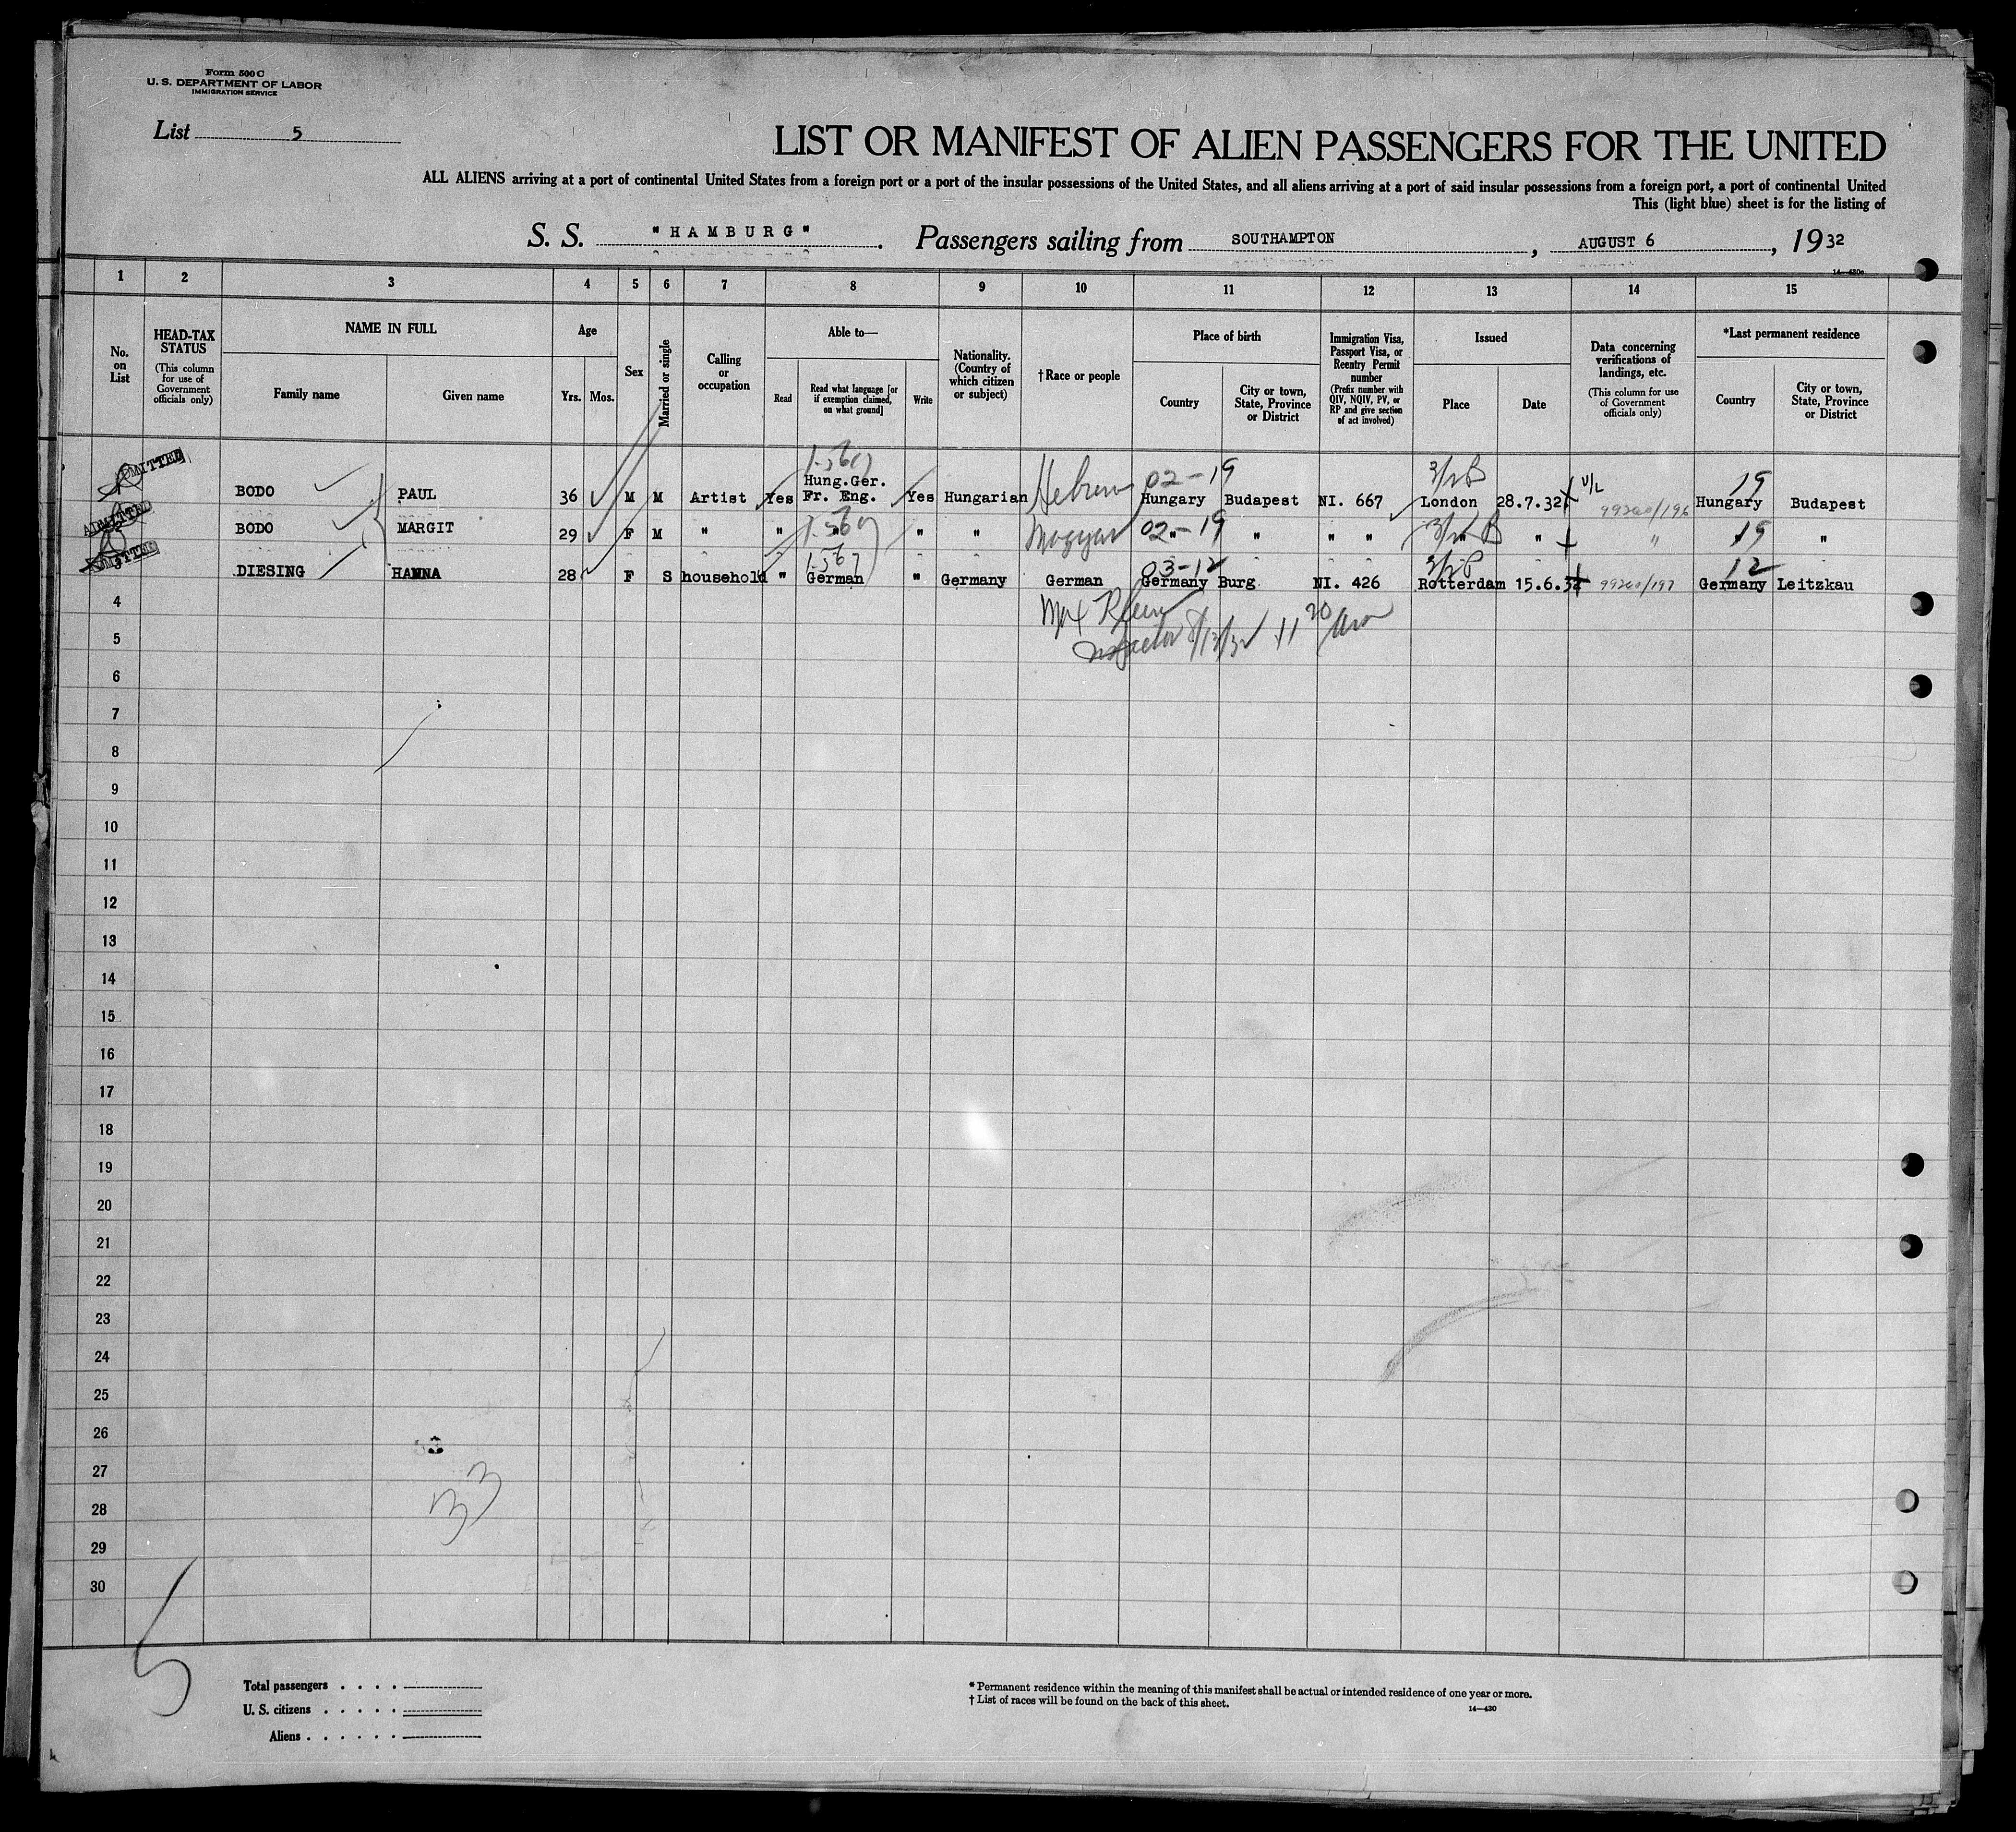 Form 500 C
U. S. DEPARTMENT OF LABOR
IMMIGRATION SERVICE
List 5
LIST OR MANIFEST OF ALIEN PASSENGERS FOR THE UNITED
ALL ALIENS arriving at a port of continental United States from a foreign port or a port of the insular possessions of the United States, and all aliens arriving at a port of said insular possessions from a foreign port, a port of continental United
This (light blue) sheet is for the listing of
S. S. "HAMBURG". Passengers sailing from SOUTHAMPTON, AUGUST 6, 1932
14—430c
1 2 3 4 5 6 7 8 9 10 11 12 13 14 15
No. on List
HEAD-TAX STATUS
(This column for use of Government officials only)
NAME IN FULL
Family name
Given name
Age
Yrs. Mos.
Sex
Married or single
Calling or occupation
Able to—
Read
Read what language [or if exemption claimed, on what ground]
Write
Nationality. (Country of which citizen or subject)
†Race or people
Place of birth
Country
City or town, State, Province or District
Immigration Visa, Passport Visa, or Reentry Permit number
(Prefix number with QIV, NQIV, PV, or RP and give section of act involved)
Issued
Place
Date
Data concerning verifications of landings, etc.
(This column for use of Government officials only)
*Last permanent residence
Country
City or town, State, Province or District
ADMITTED
1-567 02-19 19
BODO PAUL 36 M M Artist Yes Hung.Ger. Fr. Eng. Yes Hungarian Hebrew Hungary Budapest NI. 667 London 28.7.32 99260/196 Hungary Budapest
ADMITTED
1-567 02-19 19
BODO MARGIT 29 F M " " " " " Magyar " " " " " " " "
ADMITTED
1-567 03-12 12
3 DIESING HANNA 28 F S household " German " Germany German Germany Burg NI. 426 Rotterdam 15.6.32 99260/197 Germany Leitzkau
4
Inspector 8/13/32 11 20 Am
5
6
7
8
9
10
11
12
13
14
15
16
17
18
19
20
21
22
23
24
25
26
27
28
29
30
33
5
Total passengers
U. S. citizens
Aliens
* Permanent residence within the meaning of this manifest shall be actual or intended residence of one year or more.
† List of races will be found on the back of this sheet.
14—430